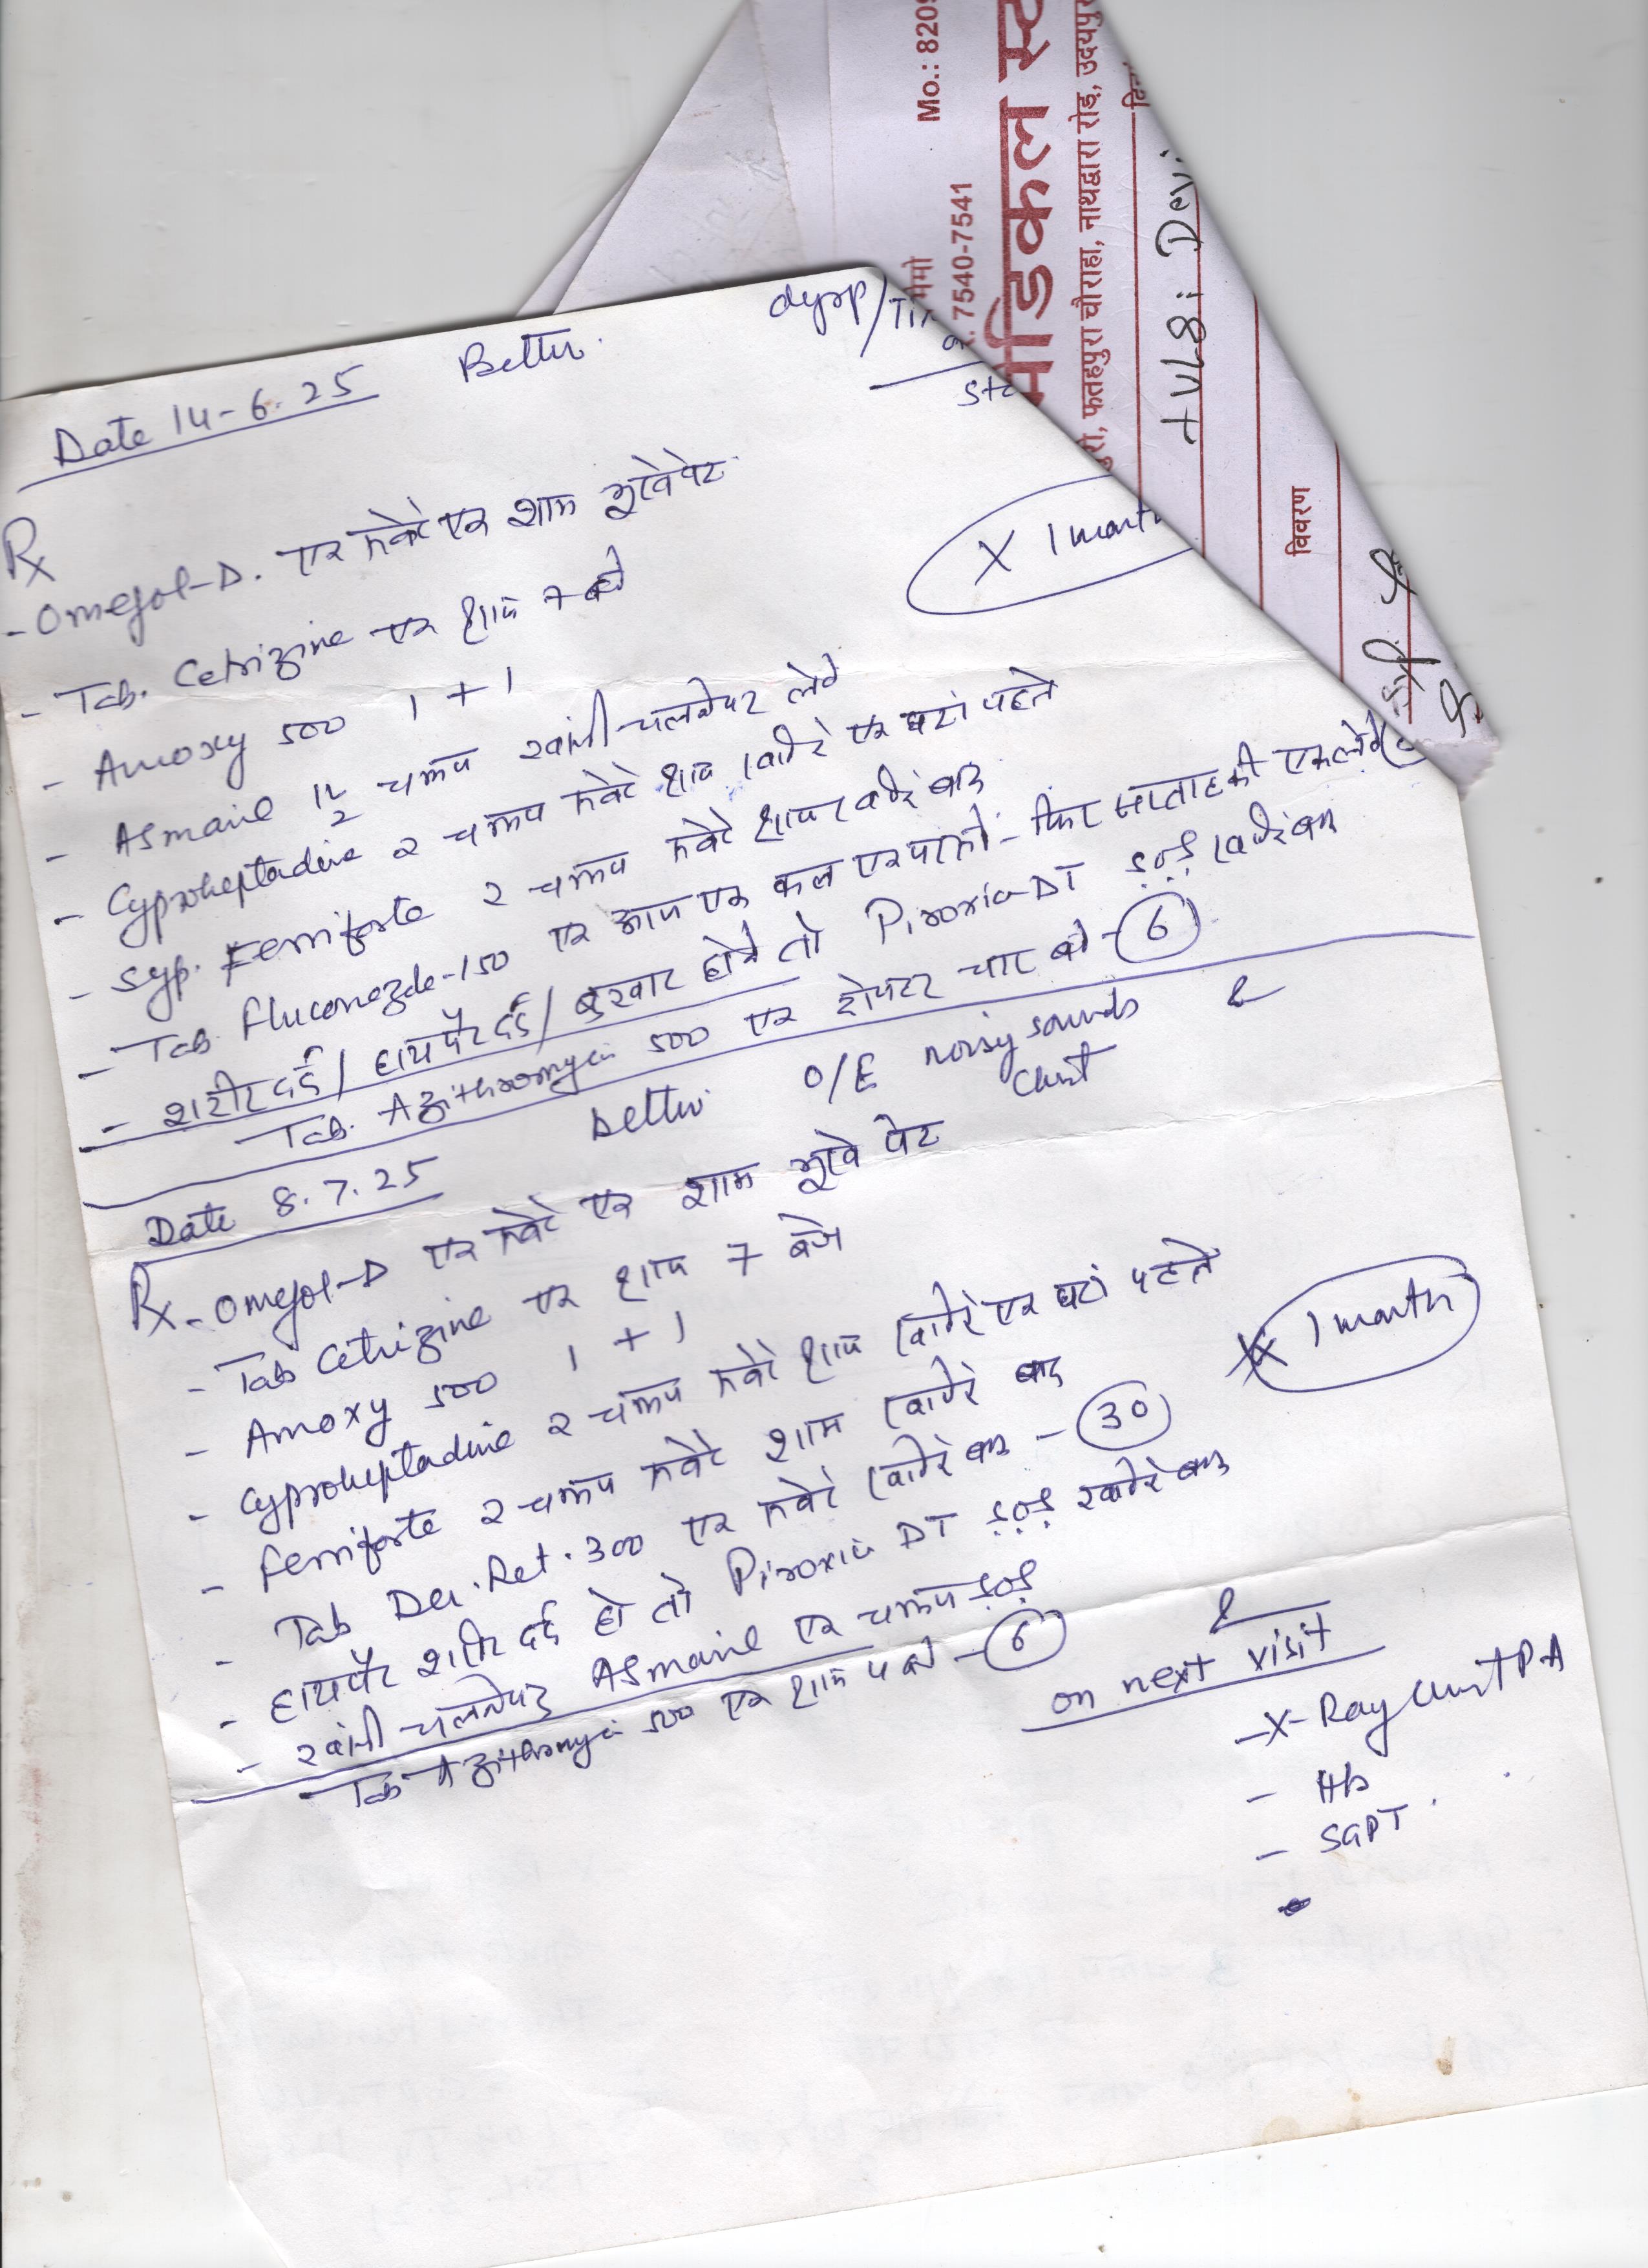 Date 14-6.25 Better.
dysp/
Rx
- Omegol-D. एक सवेरे एक शाम भूखे पेट
X 1 month
- Tab. Cetrizine एक शाम 7 बजे
- Amoxy 500 1 + 1
- Asmanil 1½ चम्मच खांसी चलने पर लेवें
- Cyproheptadine 2 चम्मच सवेरे शाम खाने से एक घंटा पहले
- Syp. Ferriforte 2 चम्मच सवेरे शाम खाने के बाद
- Tab. Fluconazole-150 एक आज एक कल एक परसों - फिर सप्ताह की एक लेवें
- शरीर दर्द / हाथ पैर दर्द / बुखार होवे तो Piroxin-DT S.O.S खाने के बाद
Tab. Azithromycin 500 एक दोपहर चार बजे - 6
Date 8.7.25 Better. O/E noisy sounds chest
Rx - Omegol-D एक सवेरे एक शाम भूखे पेट
- Tab Cetrizine एक शाम 7 बजे
- Amoxy 500 1 + 1
X 1 month
- Cyproheptadine 2 चम्मच सवेरे शाम खाने से एक घंटा पहले
- Ferriforte 2 चम्मच सवेरे शाम खाने के बाद
- Tab Der. Ret. 300 एक सवेरे खाने के बाद - 30
- हाथ पैर शरीर दर्द हो तो Piroxin DT S.O.S खाने के बाद
- खांसी चलने पर Asmanil एक चम्मच S.O.S
- Tab Azithromycin 500 एक शाम 4 बजे - 6
on next visit
- X-Ray Chest P.A
- Hb
- SGPT.
Mo.: 8209
7540-7541
मेडिकल स्ट
फतहपुरा चौराहा, नाथद्वारा रोड़, उदयपुर
Devi
विवरण